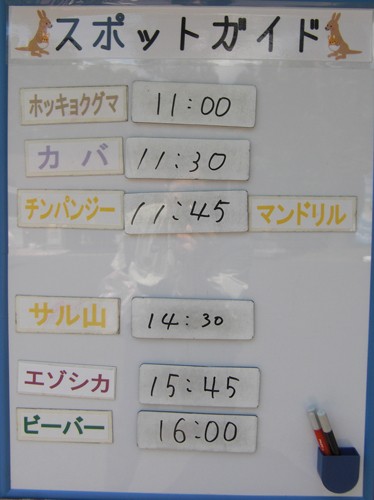 スポットガイド
ホッキョクグマ 11:00
カバ 11:30
チンパンジー 11:45 マンドリル
サル山 14:30
エゾシカ 15:45
ビーバー 16:00